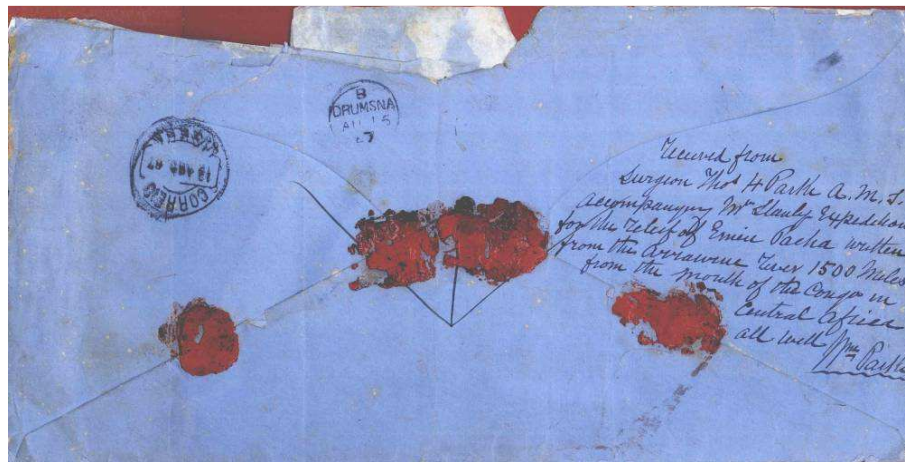 B
DRUMSNA
AU 15
CORREIO
received from
Surgeon Thos H Parke A. M. S.
accompanying Mr Stanly Expedition
for the relief of Emin Pacha written
from the Arrawine River 1500 Miles
from the mouth of the Congo in
Central Africa
all well Wm Parke